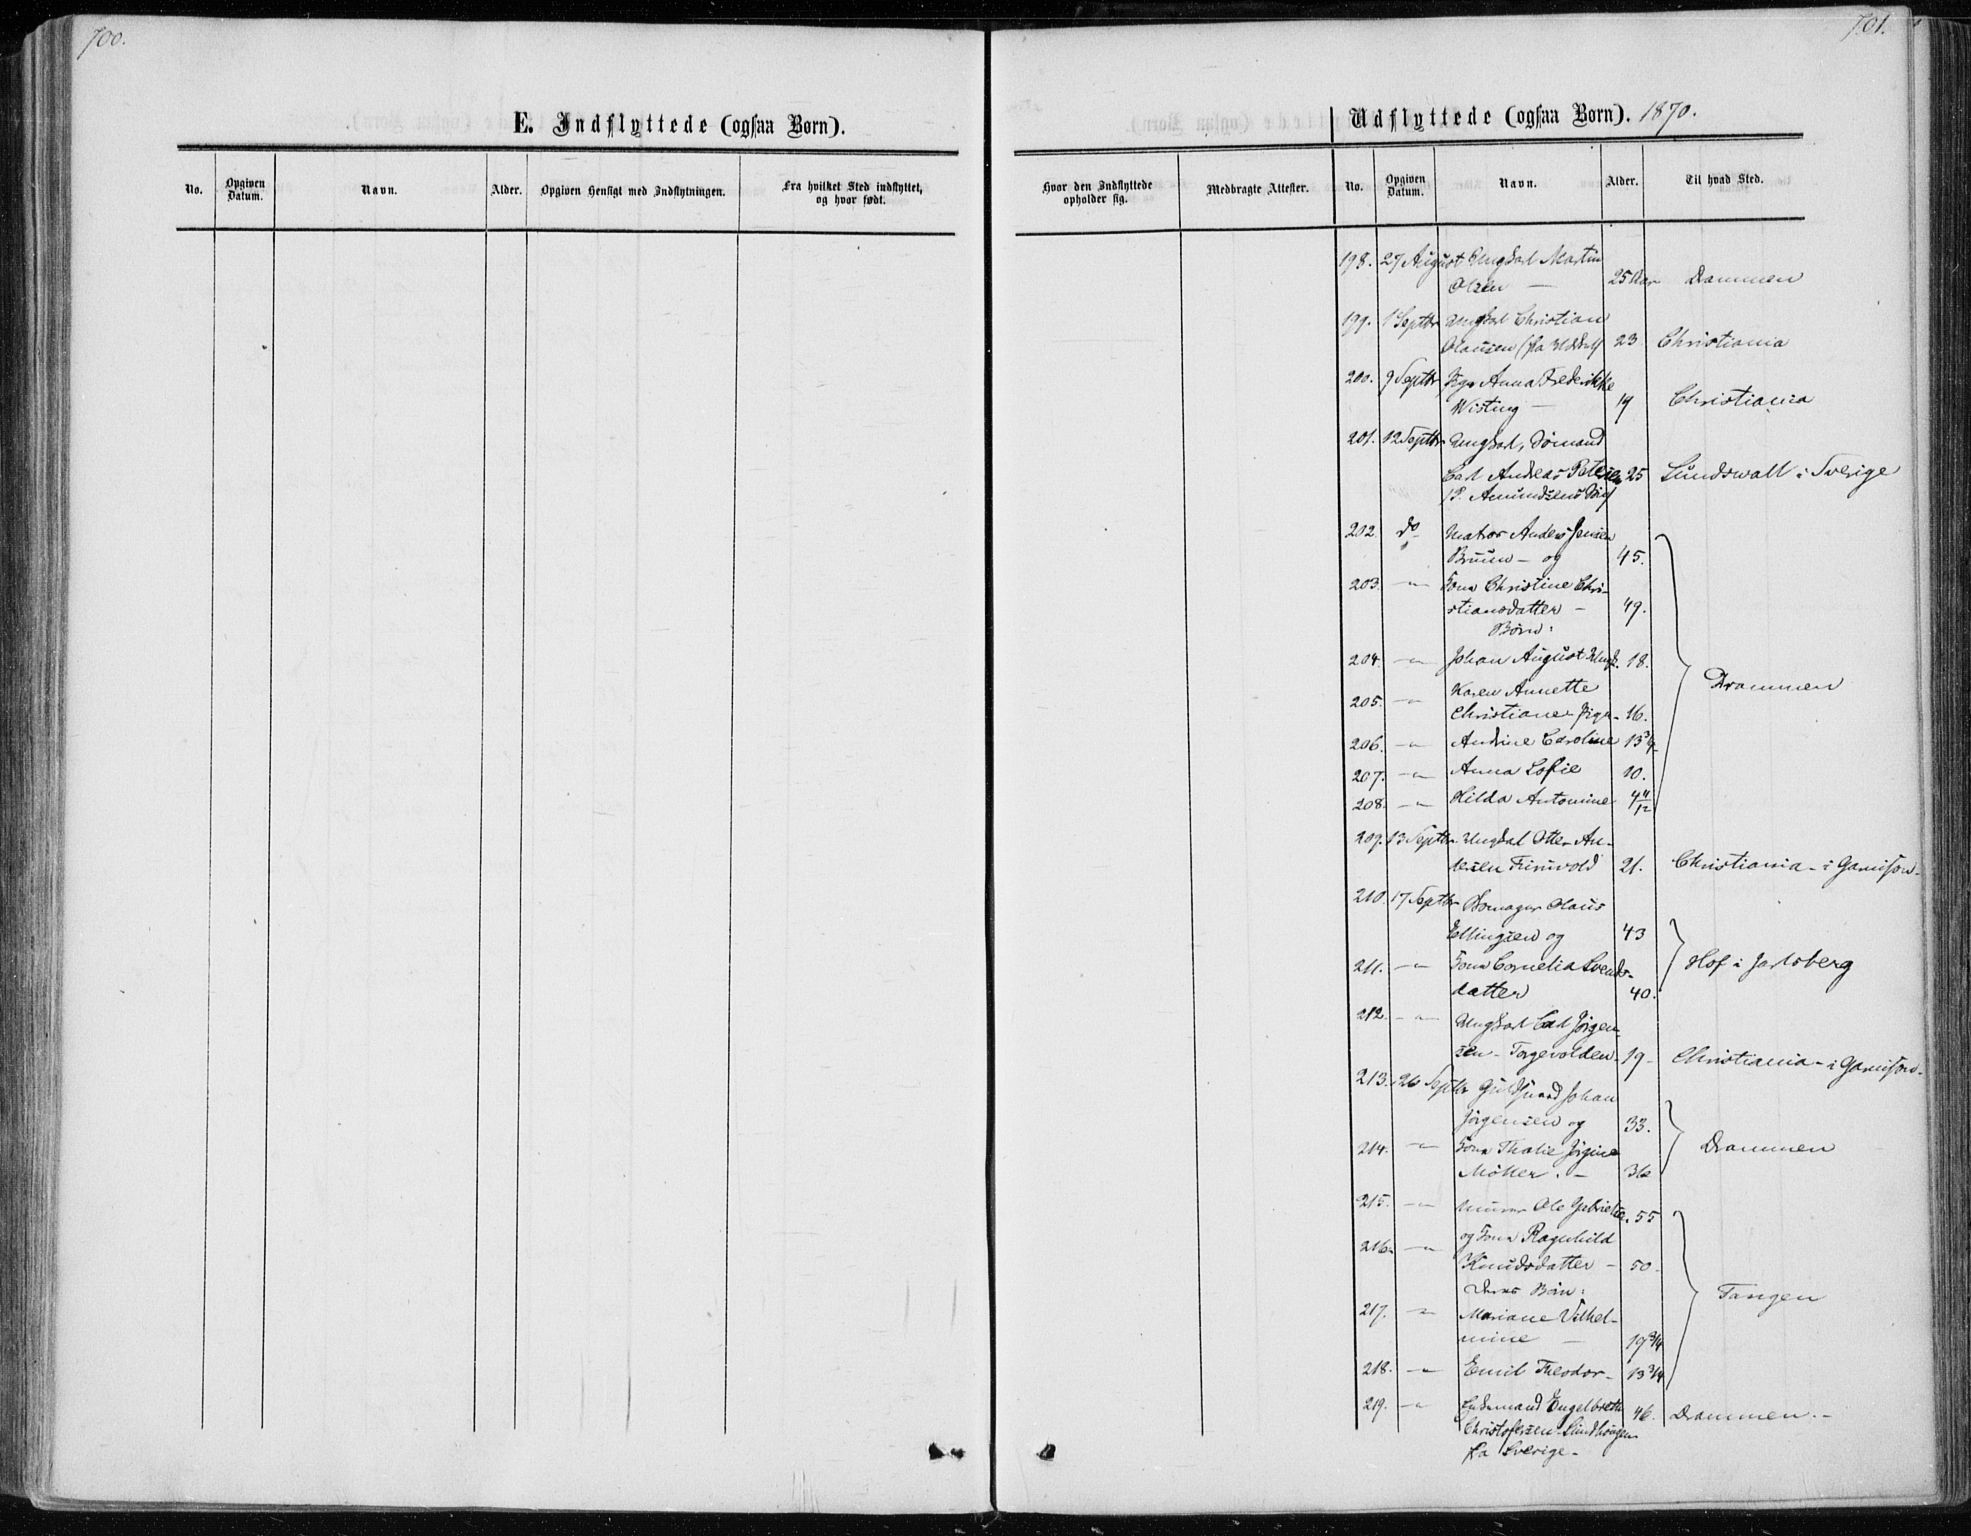 700.
E. Indflyttede (ogsaa Børn).
No.
Opgiven
Datum.
Navn.
Alder.
Opgiven Hensigt med Indflytningen.
Fra hvilket Sted indflyttet,
og hvor født.
701.
Udflyttede (ogsaa Børn). 1870.
Hvor den Indflyttede
opholder sig.
Medbragte Attester.
No.
Opgiven
Datum.
Navn.
Alder.
Til hvad Sted.
198. 27 August Ungkarl Martin
Olsen — 25 Aar Drammen
199. 1 Septbr Ungkarl Christian
Olausen (fra 23 Christiania
200. 9 Septbr Pige Anna Frederikke
Wisting — 19 Christiania
201. 12 Septbr Ungkarl, Sömand
Carl Andreas Petersen 25 Sundswall i Sverige
(P. Amundsens Søn)
202. do Matros Anders Jensen
Bruun - og 45.
203. -"- Kone Christine Chri-
stiansdatter - 49.
Börn:
204. -"- Johan August Ungk. 18.
Drammen
205. -"- Karen Annette
Christiane - Pige - 16.
206. -"- Andrine Caroline 13 3/4
207. -"- Anna Sofie 10.
208. -"- Hilda Antonine 4 11/12
209. 13 Septbr. Ungkarl Otto An-
dersen 21. Christiania - i Garnison.
210. 17 Septbr Olaus
Ellingsen og 43
Hof i Jarlsberg
211. -"- Kone Cornelia Svends-
datter 40.
212. -"- Ungkarl Carl Jörgen-
sen - Torgevolden - 19 - Christiania - i Garnison.
213. 26 Septbr Guldsmed Johan
Jörgensen og 33.
Drammen
214. -"- Kone Thalie Jörgine
Möller. - 36
215. -"- Murer Ole Gabrielsen. 55
216. -"- og Kone Ragnhild
Knudsdatter - 50.
Deres Börn:
Tangen
217. -"- Mariane Vilhel-
mine — 19 3/4
218. -"- Emil Theodor - 13 3/4
219. -"- Engelbreth 46. Drammen. -
Christofersen
fra Sverige -